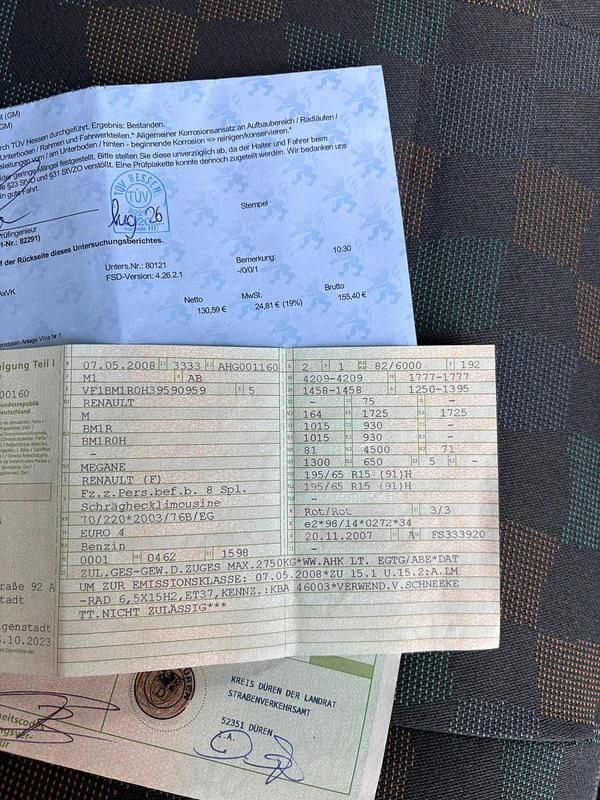 (GM)
GM)
rch TÜV Hessen durchgeführt. Ergebnis: Bestanden.
Unterboden / Rahmen und Fahrwerkteilen.* Allgemeiner Korrosionsansatz an Aufbaubereich / Radläufen /
sleitungen vorn / am Unterboden / hinten - beginnende Korrosion => reinigen/konservieren.*
geringe Mängel festgestellt. Bitte stellen Sie diese unverzüglich ab, da der Halter und Fahrer beim
§23 StVO und §31 StVZO verstößt. Eine Prüfplakette konnte dennoch zugeteilt werden. Wir bedanken uns
gute Fahrt.
TÜV HESSEN
TÜV
Aug 26
HU
Stempel
rüfingenieur
-Nr.: 82291)
f der Rückseite dieses Untersuchungsberichtes.
Unters.Nr.: 80121
FSD-Version: 4.26.2.1
Bemerkung:
-/0/0/1
10:30
AxVK
Netto
130,59 €
MwSt.
24,81 € (19%)
Brutto
155,40 €
igung Teil I
00160
ndesrepublik
eutschland
07.05.2008 3333 AHG001160
M1 AB
VF1BM1R0H39590959 5
RENAULT
M
BM1R
BM1R0H
-
MEGANE
RENAULT (F)
Fz.z.Pers.bef.b. 8 Spl.
Schräghecklimousine
70/220*2003/76B/EG
EURO 4
Benzin
0001 0462 1598
2 1 82/6000 192
4209-4209 1777-1777
1458-1458 1250-1395
- 75 -
164 1725 1725
1015 930 -
1015 930 -
81 4500 71
1300 650 5 -
195/65 R15 (91)H
195/65 R15 (91)H
-
Rot/Rot 3/3
e2*98/14*0272*34
20.11.2007 A FS333920
-
ZUL.GES-GEW.D.ZUGES MAX.2750KG*WW.AHK LT. EGTG/ABE*DAT
UM ZUR EMISSIONSKLASSE: 07.05.2008*ZU 15.1 U.15.2:A.LM
-RAD 6,5X15H2,ET37,KENNZ.:KBA 46003*VERWEND.V.SCHNEEKE
TT.NICHT ZULÄSSIG***
raße 92 A
stadt
genstadt
.10.2023
KREIS DÜREN DER LANDRAT
STRAßENVERKEHRSAMT
52351 DÜREN
I.A.